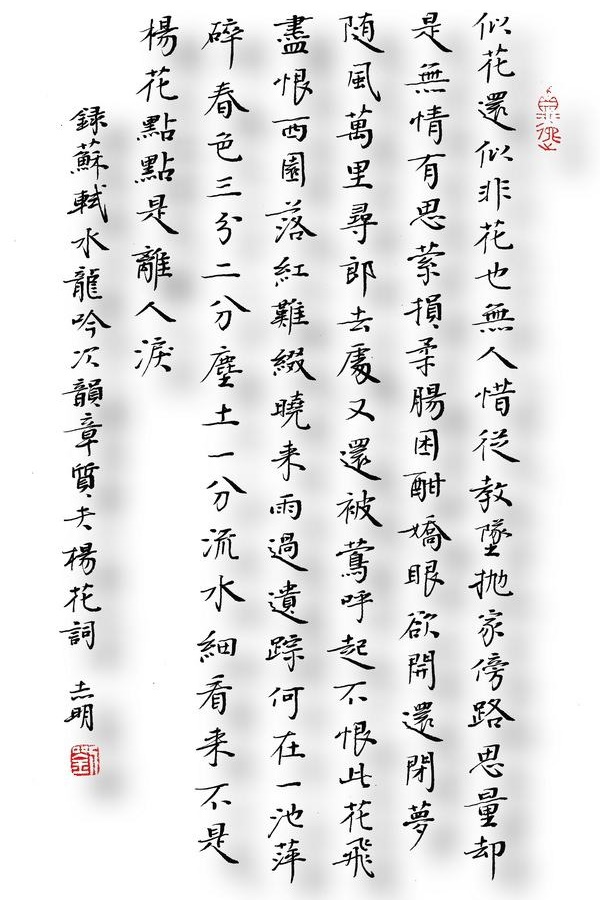 似花還似非花也無人惜從教墜拋家傍路思量却
是無情有思縈損柔腸困酣嬌眼欲開還閉夢
随風萬里尋郎去處又還被鶯呼起不恨此花飛
盡恨西園落紅難綴曉来雨過遺踪何在一池萍
碎春色三分二分塵土一分流水細看来不是
楊花點點是離人淚
録蘇軾水龍吟次韻章質夫楊花詞 志明
劉